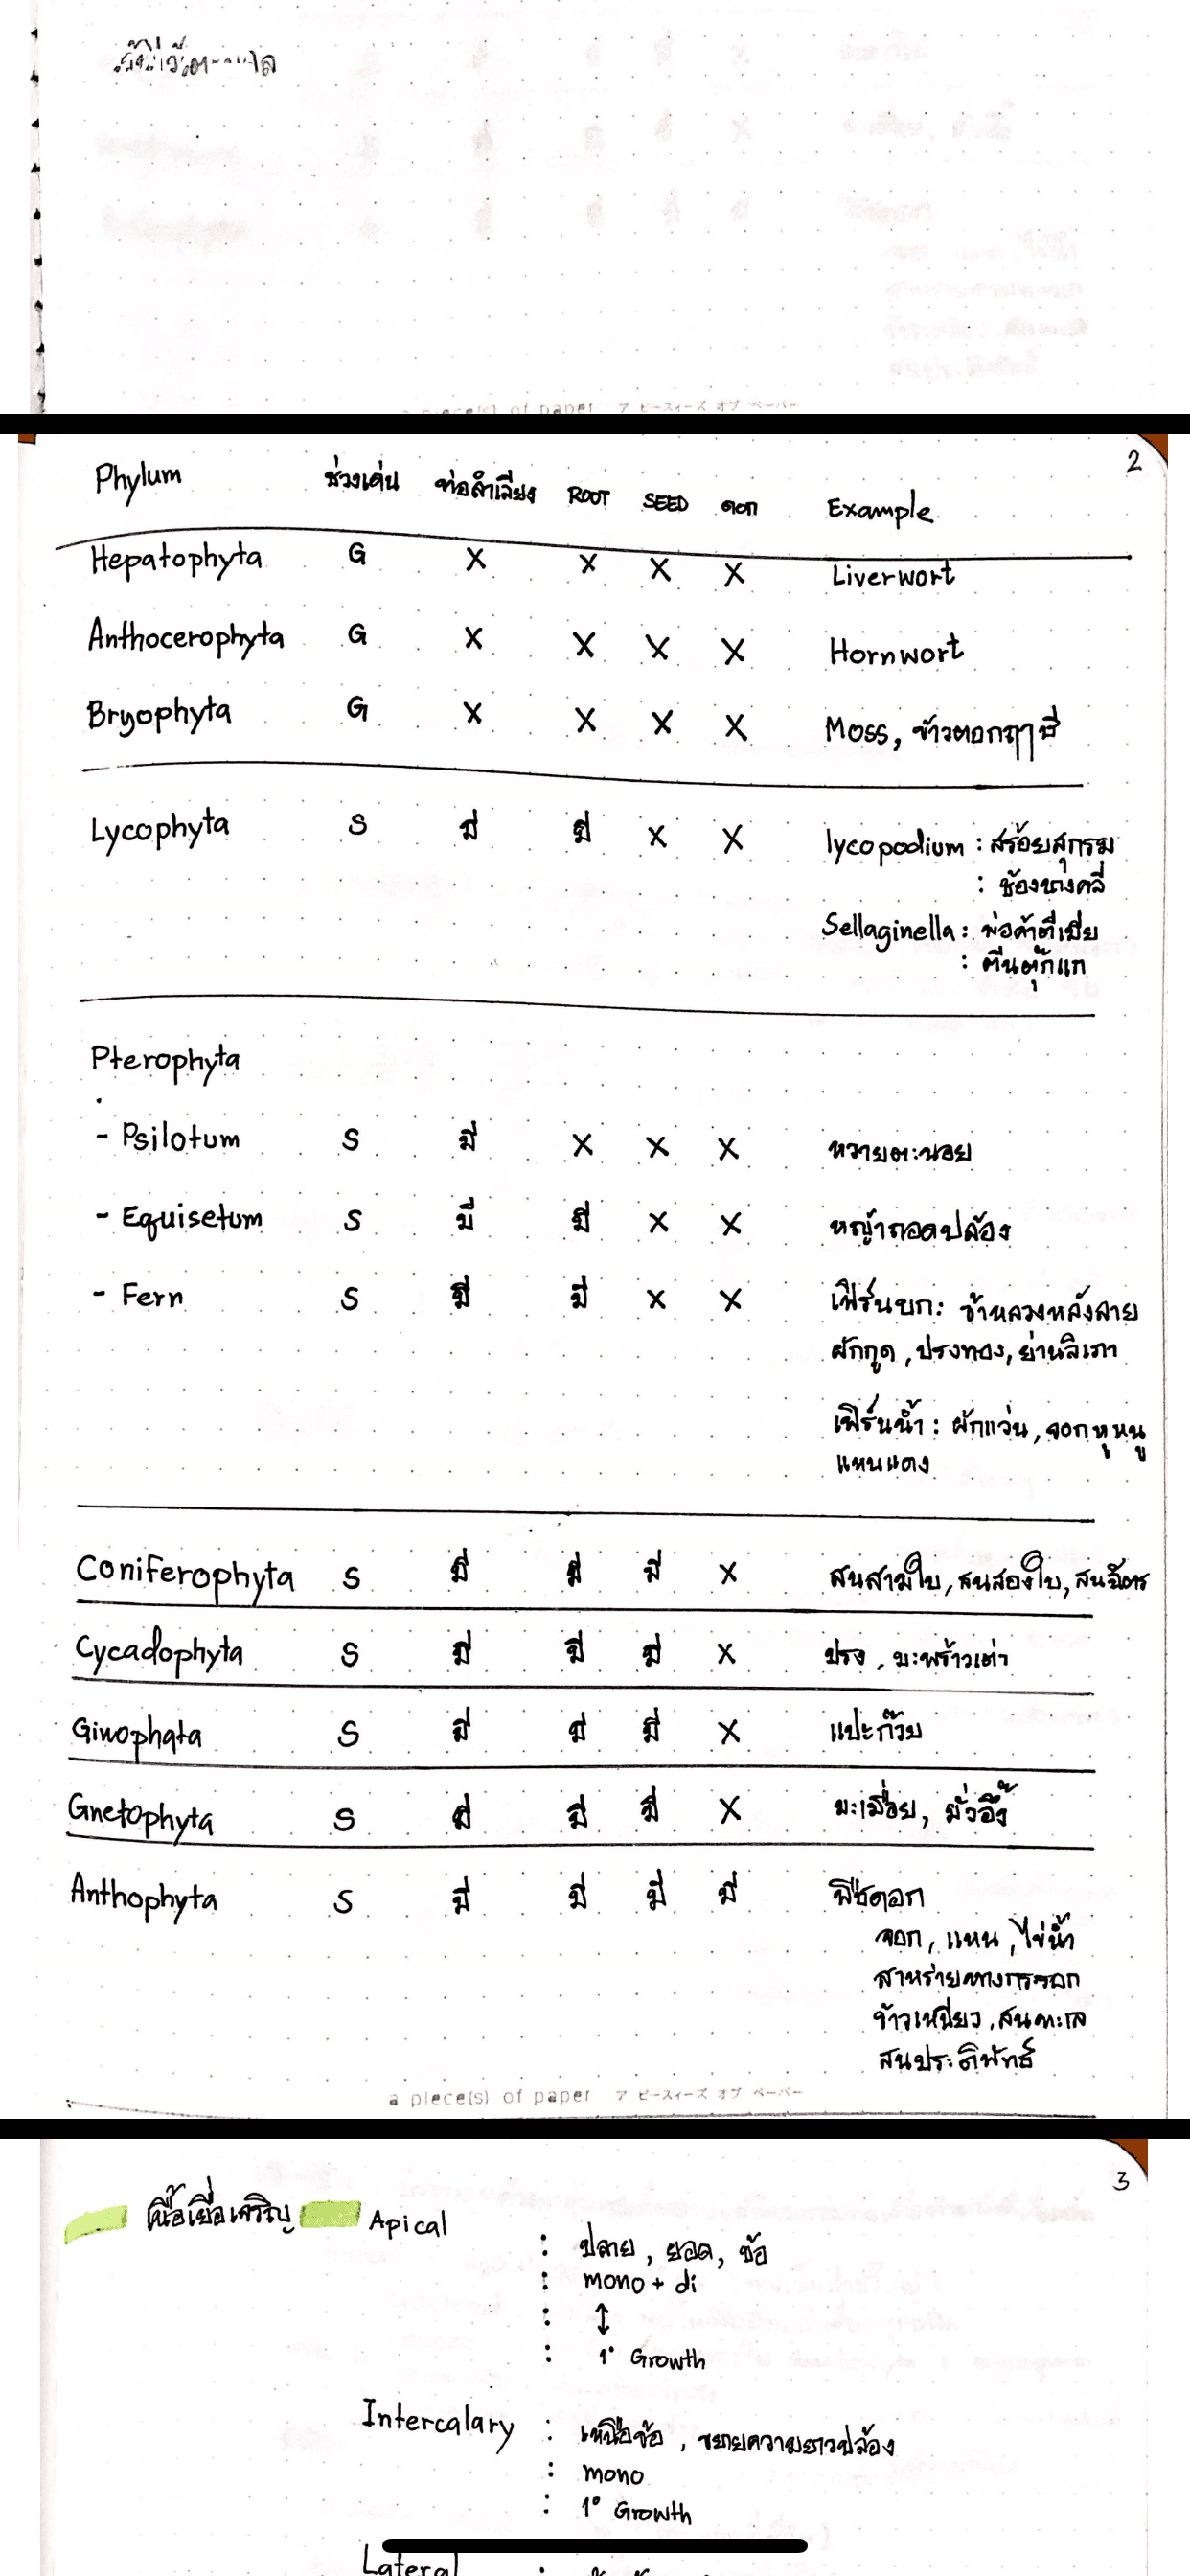 a piece(s) of paper ア ピースィーズ オブ ペーパー
2
Phylum ช่วงเด่น ท่อลำเลียง ROOT SEED ดอก Example
Hepatophyta G X X X X Liverwort
Anthocerophyta G X X X X Hornwort
Bryophyta G X X X X Moss, ข้าวตอกฤๅษี
Lycophyta S มี มี X X lycopodium : สร้อยสุกรม
: ช้องนางคลี่
Sellaginella : พ่อค้าตีเมีย
: ตีนตุ๊กแก
Pterophyta
- Psilotum S มี X X X หวายทะนอย
- Equisetum S มี มี X X หญ้าถอดปล้อง
- Fern S มี มี X X เฟิร์นบก: ข้าหลวงหลังลาย
ผักกูด, ปรงทอง, ย่านลิเภา
เฟิร์นน้ำ : ผักแว่น, จอกหูหนู
แหนแดง
Coniferophyta S มี มี มี X สนสามใบ, สนสองใบ, สนฉัตร
Cycadophyta S มี มี มี X ปรง, มะพร้าวเต่า
Ginophata S มี มี มี X แปะก๊วย
Gnetophyta S มี มี มี X มะเมื่อย, มั่วอึ้ง
Anthophyta S มี มี มี มี พืชดอก
จอก, แหน, ไข่น้ำ
สาหร่ายหางกระรอก
ข้าวเหนียว, สนทะเล
สนประดิพัทธ์
a piece(s) of paper ア ピースィーズ オブ ペーパー
3
เนื้อเยื่อเจริญ Apical : ปลาย, ยอด, ข้อ
: mono + di
: ↕
: 1° Growth
Intercalary : เหนือข้อ, ขยายความยาวปล้อง
: mono
: 1° Growth
Lateral :